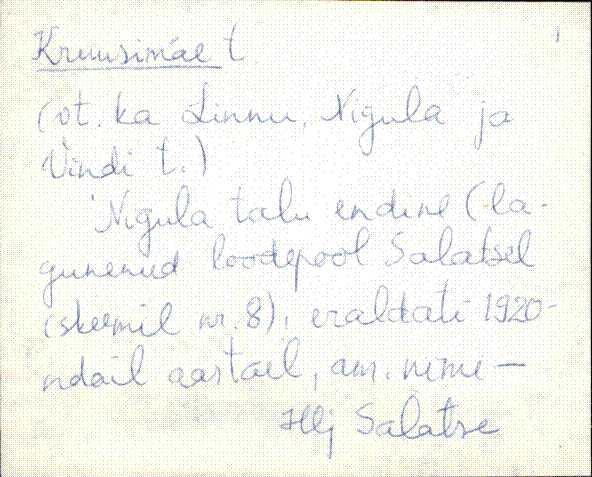 Kruusimäe t
1
(vt. ka Linnu, Nigula ja
Vindi t.)
Nigula talu endine (la-
gunenud loodepool Salatsel
(skeemil nr. 8), eraldati 1920-
ndail aastail, am. nime —
Hlj Salatse